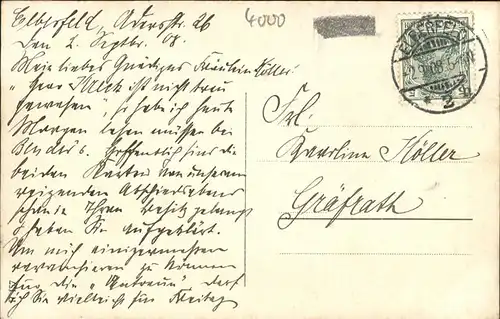 Elberfeld, Adersstr. 26
4000
Den 2. Septbr. 08.
Mein liebes Gnädiges Fräulein Köller.
"Herr ist nicht treu
gewesen", so habe ich heute
Morgen lesen müssen bei
Hoffentlich sind die
beiden Karten von unserem
reizenden Abschiedsabend
schon in Ihren Besitz gelangt
& haben Sie aufgeklärt.
Um mich einigermassen
revanchieren zu können
für die "Untreue" darf
ich Sie vielleicht für Freitag
ELBERFELD
2.9.08
* 2 q
Frl.
Karoline Köller
Gräfrath